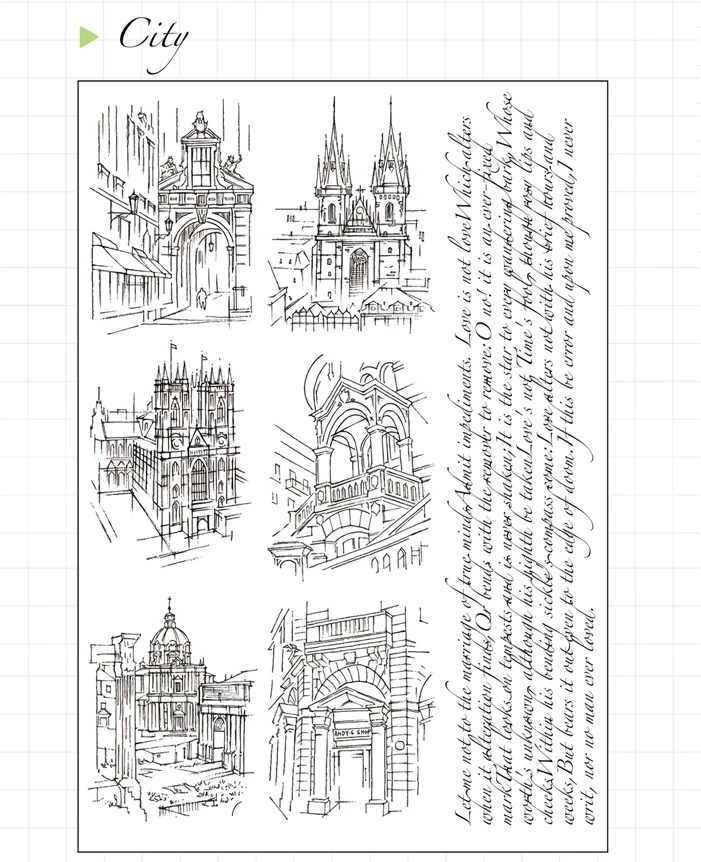 City
ANDY'S SHOP
Let me not to the marriage of true minds Admit impediments. Love is not love Which alters
when it alteration finds, Or bends with the remover to remove: O no! it is an ever-fixed
mark That looks on tempests and is never shaken; It is the star to every wandering bark, Whose
worth's unknown, although his highth be taken. Love's not Time's fool, though rosy lips and
cheeks Within his bending sickle's compass come: Love alters not with his brief hours and
weeks, But bears it out even to the edge of doom. If this be error and upon me proved, I never
writ, nor no man ever loved.